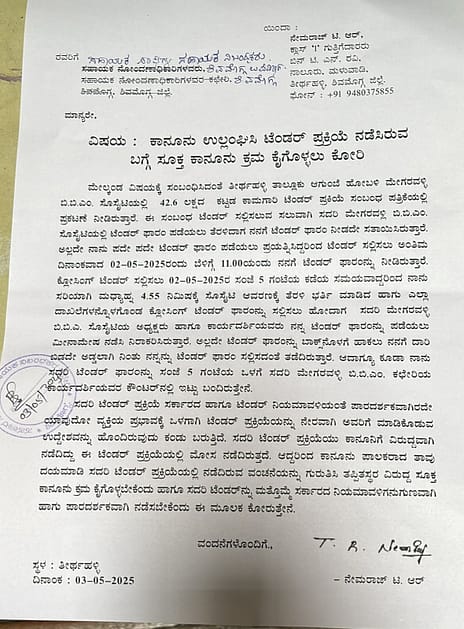 ಯಿಂದಾ :
ನೇಮರಾಜ್ ಟಿ. ಆರ್.
ಕ್ಲಾಸ್ 'I' ಗುತ್ತಿಗೆದಾರರು
ಬಿನ್ ಟಿ. ಎನ್. ರವಿ,
ನಾಲೂರು, ಮಳುವಾಡಿ.
ತೀರ್ಥಹಳ್ಳಿ, ಶಿವಮೊಗ್ಗ ಜಿಲ್ಲೆ.
ಫೋನ್ : +91 9480375855
ರವರಿಗೆ
ಸಹಾಯಕ ನೋಂದಣಾಧಿಕಾರಿಗಳವರು,
ಸಹಾಯಕ ನೋಂದಣಾಧಿಕಾರಿಗಳವರ ಕಛೇರಿ, ಶಿವಮೊಗ್ಗ
ಶಿವಮೊಗ್ಗ, ಶಿವಮೊಗ್ಗ ಜಿಲ್ಲೆ.
ಮಾನ್ಯರೇ,
ವಿಷಯ : ಕಾನೂನು ಉಲ್ಲಂಘಿಸಿ ಟೆಂಡರ್ ಪ್ರಕ್ರಿಯೆ ನಡೆಸಿರುವ
ಬಗ್ಗೆ ಸೂಕ್ತ ಕಾನೂನು ಕ್ರಮ ಕೈಗೊಳ್ಳಲು ಕೋರಿ
ಮೇಲ್ಕಂಡ ವಿಷಯಕ್ಕೆ ಸಂಬಂಧಿಸಿದಂತೆ ತೀರ್ಥಹಳ್ಳಿ ತಾಲ್ಲೂಕು ಆಗುಂಬೆ ಹೋಬಳಿ ಮೇಗರವಳ್ಳಿ
ಬಿ.ಬಿ.ಎಂ. ಸೊಸೈಟಿಯಲ್ಲಿ 42.6 ಲಕ್ಷದ ಕಟ್ಟಡ ಕಾಮಗಾರಿ ಟೆಂಡರ್ ಪ್ರಕಿಯೆ ಸಂಬಂಧ ಪತ್ರಿಕೆಯಲ್ಲಿ
ಪ್ರಕಟಣೆ ನೀಡಿರುತ್ತಾರೆ. ಈ ಸಂಬಂಧ ಟೆಂಡರ್ ಸಲ್ಲಿಸಲುವ ಸಲುವಾಗಿ ಸದರಿ ಮೇಗರವಳ್ಲಿ ಬಿ.ಬಿ.ಎಂ.
ಸೊಸೈಟಿಯಲ್ಲಿ ಟೆಂಡರ್ ಫಾರಂ ಪಡೆಯಲು ತೆರಳಿದಾಗ ನನಗೆ ಟೆಂಡರ್ ಫಾರಂ ನೀಡದೇ ಸತಾಯಿಸಿರುತ್ತಾರೆ.
ಅಲ್ಲದೇ ನಾನು ಪದೇ ಪದೇ ಟೆಂಡರ್ ಫಾರಂ ಪಡೆಯಲು ಪ್ರಯತ್ನಿಸಿದ್ದರಿಂದ ಟೆಂಡರ್ ಸಲ್ಲಿಸಲು ಅಂತಿಮ
ದಿನಾಂಕವಾದ 02-05-2025ರಂದು ಬೆಳಿಗ್ಗೆ 11.00ಯಂದು ನನಗೆ ಟೆಂಡರ್ ಫಾರಂನ್ನು ನೀಡಿರುತ್ತಾರೆ.
ಕ್ಲೋಸಿಂಗ್ ಟೆಂಡರ್ ಸಲ್ಲಿಸಲು 02-05-2025ರ ಸಂಜೆ 5 ಗಂಟೆಯ ಕಡೆಯ ಸಮಯವಾದ್ದರಿಂದ ನಾನು
ಸರಿಯಾಗಿ ಮಧ್ಯಾಹ್ನ 4.55 ನಿಮಿಷಕ್ಕೆ ಸೊಸೈಟಿ ಆವರಣಕ್ಕೆ ತೆರಳಿ ಭರ್ತಿ ಮಾಡಿದ ಹಾಗು ಎಲ್ಲಾ
ದಾಖಲೆಗಳನ್ನೊಳಗೊಂಡ ಕ್ಲೋಸಿಂಗ್ ಟೆಂಡರ್ ಫಾರಂನ್ನು ಸಲ್ಲಿಸಲು ಹೋದಾಗ ಸದರಿ ಮೇಗರವಳ್ಳಿ
ಬಿ.ಬಿ.ಎ. ಸೊಸೈಟಿಯ ಅಧ್ಯಕ್ಷರು ಹಾಗೂ ಕಾರ್ಯದರ್ಶಿಯವರು ನನ್ನ ಟೆಂಡರ್ ಫಾರಂನ್ನು ಪಡೆಯಲು
ಮೀನಾಮೇಷ ನಡೆಸಿ ನಿರಾಕರಿಸಿರುತ್ತಾರೆ. ಅಲ್ಲದೇ ಟೆಂಡರ್ ಬಾಕ್ಸ್‌ನೊಳಗೆ ಹಾಕಲು ನನಗೆ ದಾರಿ
ಬಿಡದೇ ಅಡ್ಡಲಾಗಿ ನಿಂತು ನನ್ನನ್ನು ಟೆಂಡರ್ ಫಾರಂ ಸಲ್ಲಿಸದಂತೆ ತಡೆದಿರುತ್ತಾರೆ. ಆದಾಗ್ಯೂ ಕೂಡಾ ನಾನು
ಸದ್ರಿ ಟೆಂಡರ್ ಫಾರಂನ್ನು ಸಂಜೆ 5 ಗಂಟೆಯ ಒಳಗೆ ಸದರಿ ಮೇಗರವಳ್ಳಿ ಬಿ.ಬಿ.ಎಂ. ಕಛೇರಿಯ
ಕಾರ್ಯದರ್ಶಿಯವರ ಕೌಂಟರ್‌ನಲ್ಲಿ ಇಟ್ಟು ಬಂದಿರುತ್ತೇನೆ.
ಸದರಿ ಟೆಂಡರ್ ಪ್ರಕ್ರಿಯೆ ಸರ್ಕಾರದ ಹಾಗೂ ಟೆಂಡರ್ ನಿಯಮಾವಳಿಯಂತೆ ಪಾರದರ್ಶಕವಾಗಿರದೇ
ಯಾವುದೋ ವ್ಯಕ್ತಿಯ ಪ್ರಭಾವಕ್ಕೆ ಒಳಗಾಗಿ ಟೆಂಡರ್ ಪ್ರಕ್ರಿಯೆಯನ್ನು ನೇರವಾಗಿ ಅವರಿಗೆ ಮಾಡಿಕೊಡುವ
ಉದ್ದೇಶವನ್ನು ಹೊಂದಿರುವುದು ಕಂಡು ಬರುತ್ತಿದೆ. ಸದರಿ ಟೆಂಡರ್ ಪ್ರಕ್ರಿಯೆಯು ಕಾನೂನಿಗೆ ವಿರುದ್ಧವಾಗಿ
ನಡೆದಿದ್ದು ಈ ಟೆಂಡರ್ ಪ್ರಕ್ರಿಯೆಯಲ್ಲಿ ಮೋಸ ನಡೆದಿರುತ್ತದೆ. ಆದ್ದರಿಂದ ಕಾನೂನು ಪಾಲಕರಾದ ತಾವು
ದಯಮಾಡಿ ಸದರಿ ಟೆಂಡರ್ ಪ್ರಕ್ರಿಯೆಯಲ್ಲಿ ನಡೆದಿರುವ ವಂಚನೆಯನ್ನು ಗುರುತಿಸಿ ತಪ್ಪಿತಸ್ಥರ ವಿರುದ್ದ ಸೂಕ್ತ
ಕಾನೂನು ಕ್ರಮ ಕೈಗೊಳ್ಳಬೇಕೆಂದು ಹಾಗೂ ಸದರಿ ಟೆಂಡರ್‌ನ್ನು ಮತ್ತೊಮ್ಮೆ ಸರ್ಕಾರದ ನಿಯಮಾವಳಿಗನುಗುಣವಾಗಿ
ಹಾಗು ಪಾರದರ್ಶಕವಾಗಿ ನಡೆಸಬೇಕೆಂದು ಈ ಮೂಲಕ ಕೋರುತ್ತೇನೆ.
03/05/2025
ವಂದನೆಗಳೊಂದಿಗೆ.,
T. R. Nemraj
ಸ್ಥಳ : ತೀರ್ಥಹಳ್ಳಿ
ದಿನಾಂಕ : 03-05-2025
– ನೇಮರಾಜ್ ಟಿ. ಆರ್